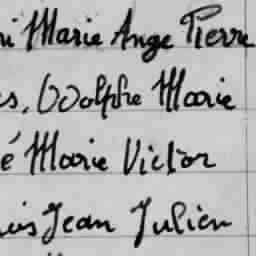 ri Marie Ange Pierre
s, Wolphe Marie
é Marie Victor
uis Jean Julien